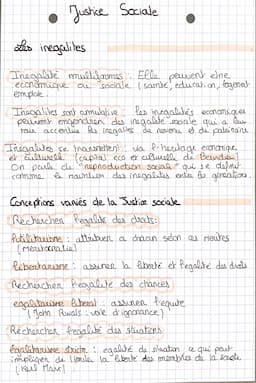 Justice Sociale
les inegalites
Inegalité multiformes : Elle peuvent etre
economique ou sociale (santé, education, logement
emploie.
Inegalites sont cumulative : les inegalités economiques
peuvent engendrer des inegalité sociale qui a leur
tour accentue les inegalites de revenu et du patrimoine
Inegalites se transmettent : via l'heritage economique
et culturelle (capital eco et culturelle de Bourdieu)
On parle de "reproduction sociale" qui se definit
comme le maintien des inegalites entre les generations.
Conceptions variés de la Justice sociale
Rechercher l'egalité des droits:
Utilitarisme : attribuer a chacun selon ses merites
(Meritocratie)
Libertarisme : assurer la liberté et l'egalité des droits
Rechercher l'egalité des chances
egalitarisme liberal : assurer l'equité
(John Rawls : voile d'ignorance)
Rechercher l'egalité des situations
Egalitarisme stricte : egalité de situation ce qui peut
impliquer de limite la liberté des membres de la societe
(Karl Marx)